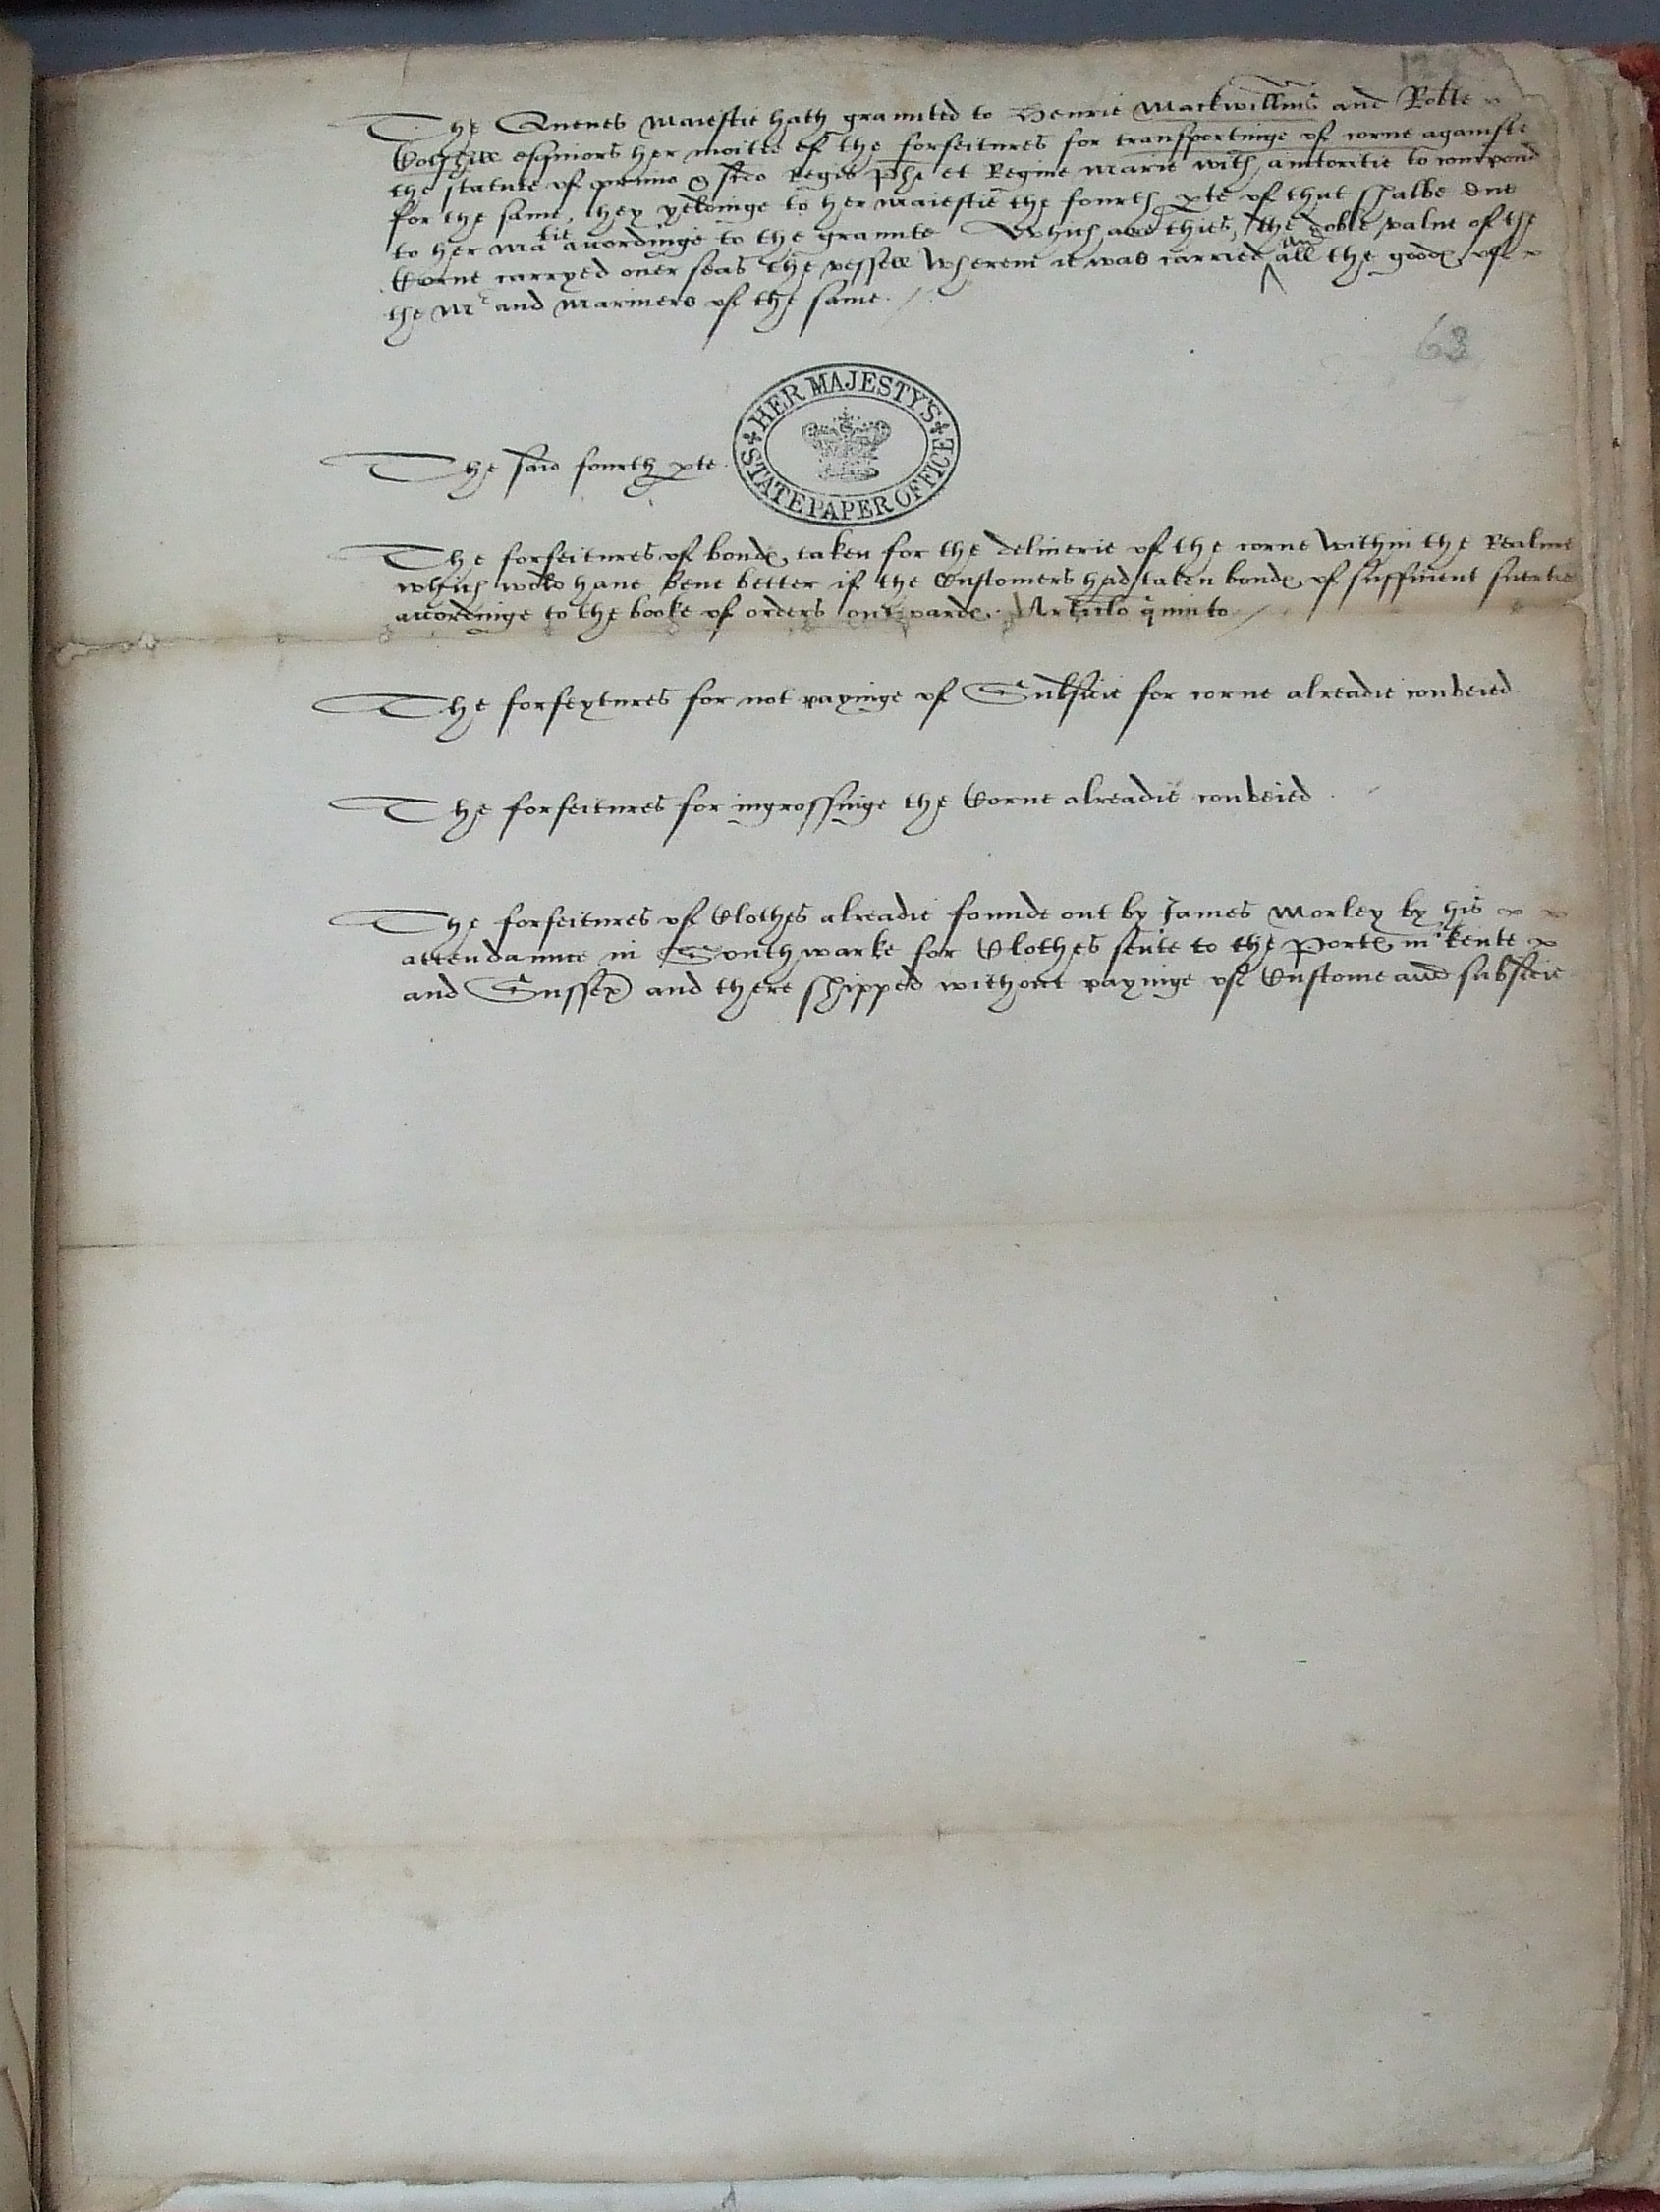 The Quenes Maiestie hath graunted to Henrie Mackwillms and Robte
esquiors her moitie of the forfeitures for transportinge of corne againste
the statute of primo & scdo Regis Phi et Regine Marie with auctoritie to compond
for the same, they yeldinge to her Maiestie the fourth pte of that shalbe due
to her Matie accordinge to the graunte Which are thies, the doble value of the
Corne carryed ouer seas the vessell Wherein it was carried and all the goodes of
the Mr and Mariners of the same.
63
HER MAJESTY'S STATE PAPER OFFICE
The said fourth pte.
The forfeitures of bondes taken for the deliuerie of the corne within the Realme
which wold haue bene better if the Customers had taken bondes of sufficient suertie
accordinge to the booke of orders outwardes. Articlo quinto
The forfeytures for not payinge of Subsidie for corne alreadie conveied
The forfeitures for ingrossinge the Corne alreadie conveied.
The forfeitures of Clothes alreadie founde out by James Morley by his
attendaunce in Southwarke for Clothes sente to the Portes in Kente
and Sussex and there shipped without payinge of Custome and subsidie